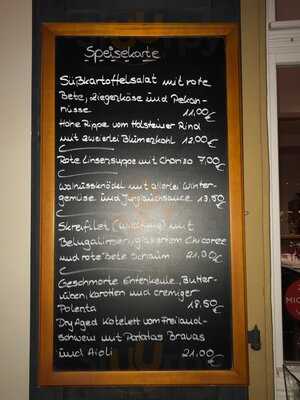 Speisekarte
Süßkartoffelsalat mit rote
Bete, Ziegenkäse und Pekan-
nüsse 11,00€
Hohe Rippe vom Holsteiner Rind
mit zweierlei Blumenkohl 12,00€
Rote Linsensuppe mit Chorizo 7,00€
Walnussknödel mit allerlei Winter-
gemüse und 13,50€
Skreifilet mit
Belugalinsen, glasiertem Chicoree
und rote Bete Schaum 21,00€
Geschmorte Entenkeule, Butter-
rüben, Karotten und cremiger
Polenta 18,50€
Dry Aged Kotelett vom Freiland-
schwein mit Patatas Bravas
und Aioli 21,00€